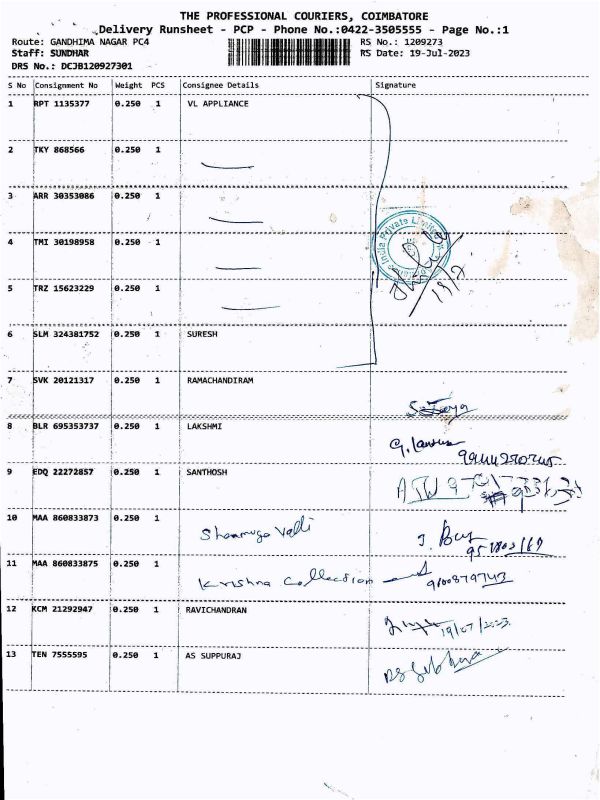 THE PROFESSIONAL COURIERS, COIMBATORE
Delivery Runsheet - PCP - Phone No.:0422-3505555 - Page No.:1
Route: GANDHIMA NAGAR PC4 RS No.: 1209273
Staff: SUNDHAR RS Date: 19-Jul-2023
DRS No.: DCJB120927301
S No Consignment No Weight PCS Consignee Details Signature
1 RPT 1135377 0.250 1 VL APPLIANCE
2 TKY 868566 0.250 1
3 ARR 30353086 0.250 1
4 TMI 30198958 0.250 1
India Private Limited
19/7
5 TRZ 15623229 0.250 1
6 SLM 324381752 0.250 1 SURESH
7 SVK 20121317 0.250 1 RAMACHANDIRAM
8 BLR 695353737 0.250 1 LAKSHMI
9 EDQ 22272857 0.250 1 SANTHOSH
10 MAA 860833873 0.250 1 Shanmuga Valli
11 MAA 860833875 0.250 1 Krishna Collection 9100879743
12 KCM 21292947 0.250 1 RAVICHANDRAN 19/07/2023.
13 TEN 7555595 0.250 1 AS SUPPURAJ